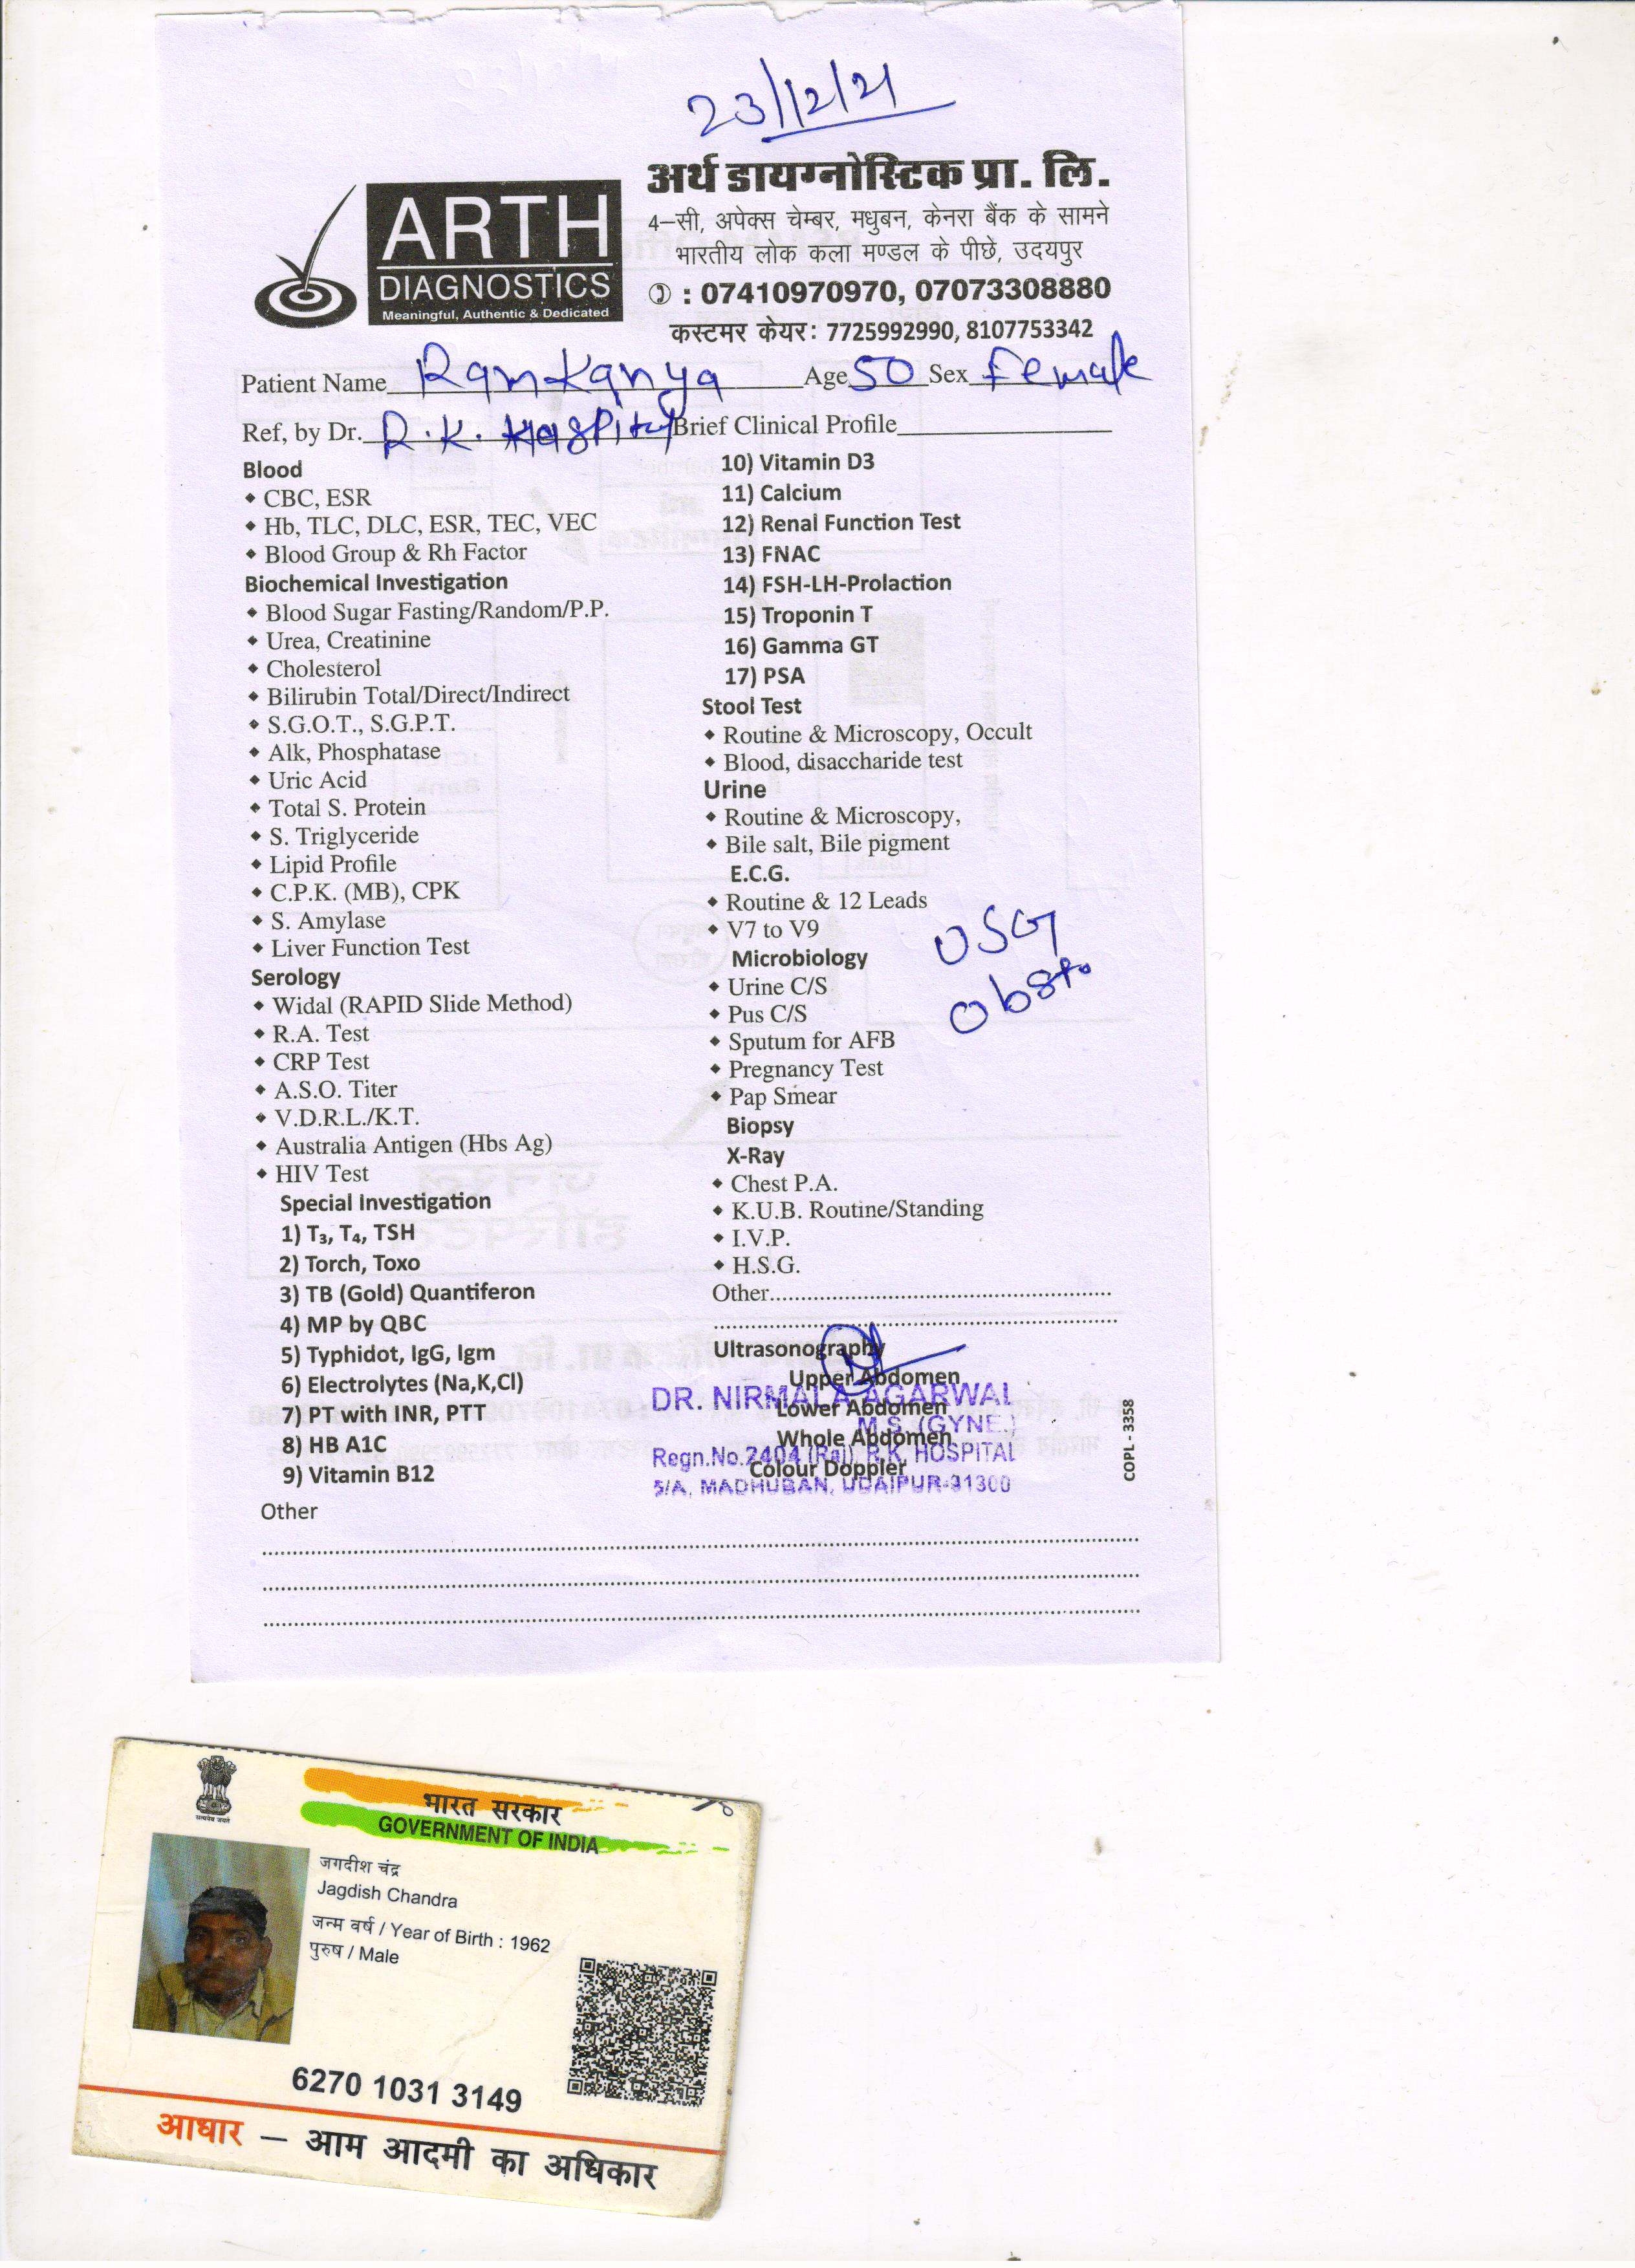 23/12/21
ARTH
DIAGNOSTICS
Meaningful, Authentic & Dedicated
अर्थ डायग्नोस्टिक प्रा. लि.
4–सी, अपेक्स चेम्बर, मधुबन, केनरा बैंक के सामने
भारतीय लोक कला मण्डल के पीछे, उदयपुर
: 07410970970, 07073308880
कस्टमर केयर: 7725992990, 8107753342
Patient Name Ramkanya Age 50 Sex Female
Ref, by Dr. R.K. Hospital Brief Clinical Profile
Blood
CBC, ESR
Hb, TLC, DLC, ESR, TEC, VEC
Blood Group & Rh Factor
Biochemical Investigation
Blood Sugar Fasting/Random/P.P.
Urea, Creatinine
Cholesterol
Bilirubin Total/Direct/Indirect
S.G.O.T., S.G.P.T.
Alk, Phosphatase
Uric Acid
Total S. Protein
S. Triglyceride
Lipid Profile
C.P.K. (MB), CPK
S. Amylase
Liver Function Test
Serology
Widal (RAPID Slide Method)
R.A. Test
CRP Test
A.S.O. Titer
V.D.R.L./K.T.
Australia Antigen (Hbs Ag)
HIV Test
Special Investigation
1) T₃, T₄, TSH
2) Torch, Toxo
3) TB (Gold) Quantiferon
4) MP by QBC
5) Typhidot, IgG, Igm
6) Electrolytes (Na,K,Cl)
7) PT with INR, PTT
8) HB A1C
9) Vitamin B12
Other
10) Vitamin D3
11) Calcium
12) Renal Function Test
13) FNAC
14) FSH-LH-Prolaction
15) Troponin T
16) Gamma GT
17) PSA
Stool Test
Routine & Microscopy, Occult
Blood, disaccharide test
Urine
Routine & Microscopy,
Bile salt, Bile pigment
E.C.G.
Routine & 12 Leads
V7 to V9
USG
Obst.
Microbiology
Urine C/S
Pus C/S
Sputum for AFB
Pregnancy Test
Pap Smear
Biopsy
X-Ray
Chest P.A.
K.U.B. Routine/Standing
I.V.P.
H.S.G.
Other
Ultrasonography
Upper Abdomen
Lower Abdomen
Whole Abdomen
Colour Doppler
DR. NIRMALA AGARWAL
M.S. (GYNE.)
Regn.No.2404 (Raj), R.K. HOSPITAL
5/A, MADHUBAN, UDAIPUR-31300
COPL - 3358
भारत सरकार
GOVERNMENT OF INDIA
जगदीश चंद्र
Jagdish Chandra
जन्म वर्ष / Year of Birth : 1962
पुरुष / Male
6270 1031 3149
आधार – आम आदमी का अधिकार